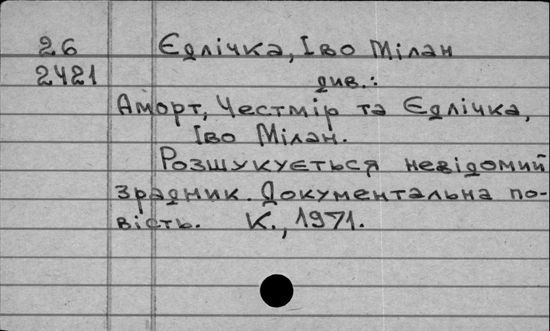 26 Єдлічка, Іво Мілан
2421 див.:
Аморт, Честмір та Єдлічка,
Іво Мілан.
Розшукується невідомий
зрадник. Документальна по-
вість. К., 1971.